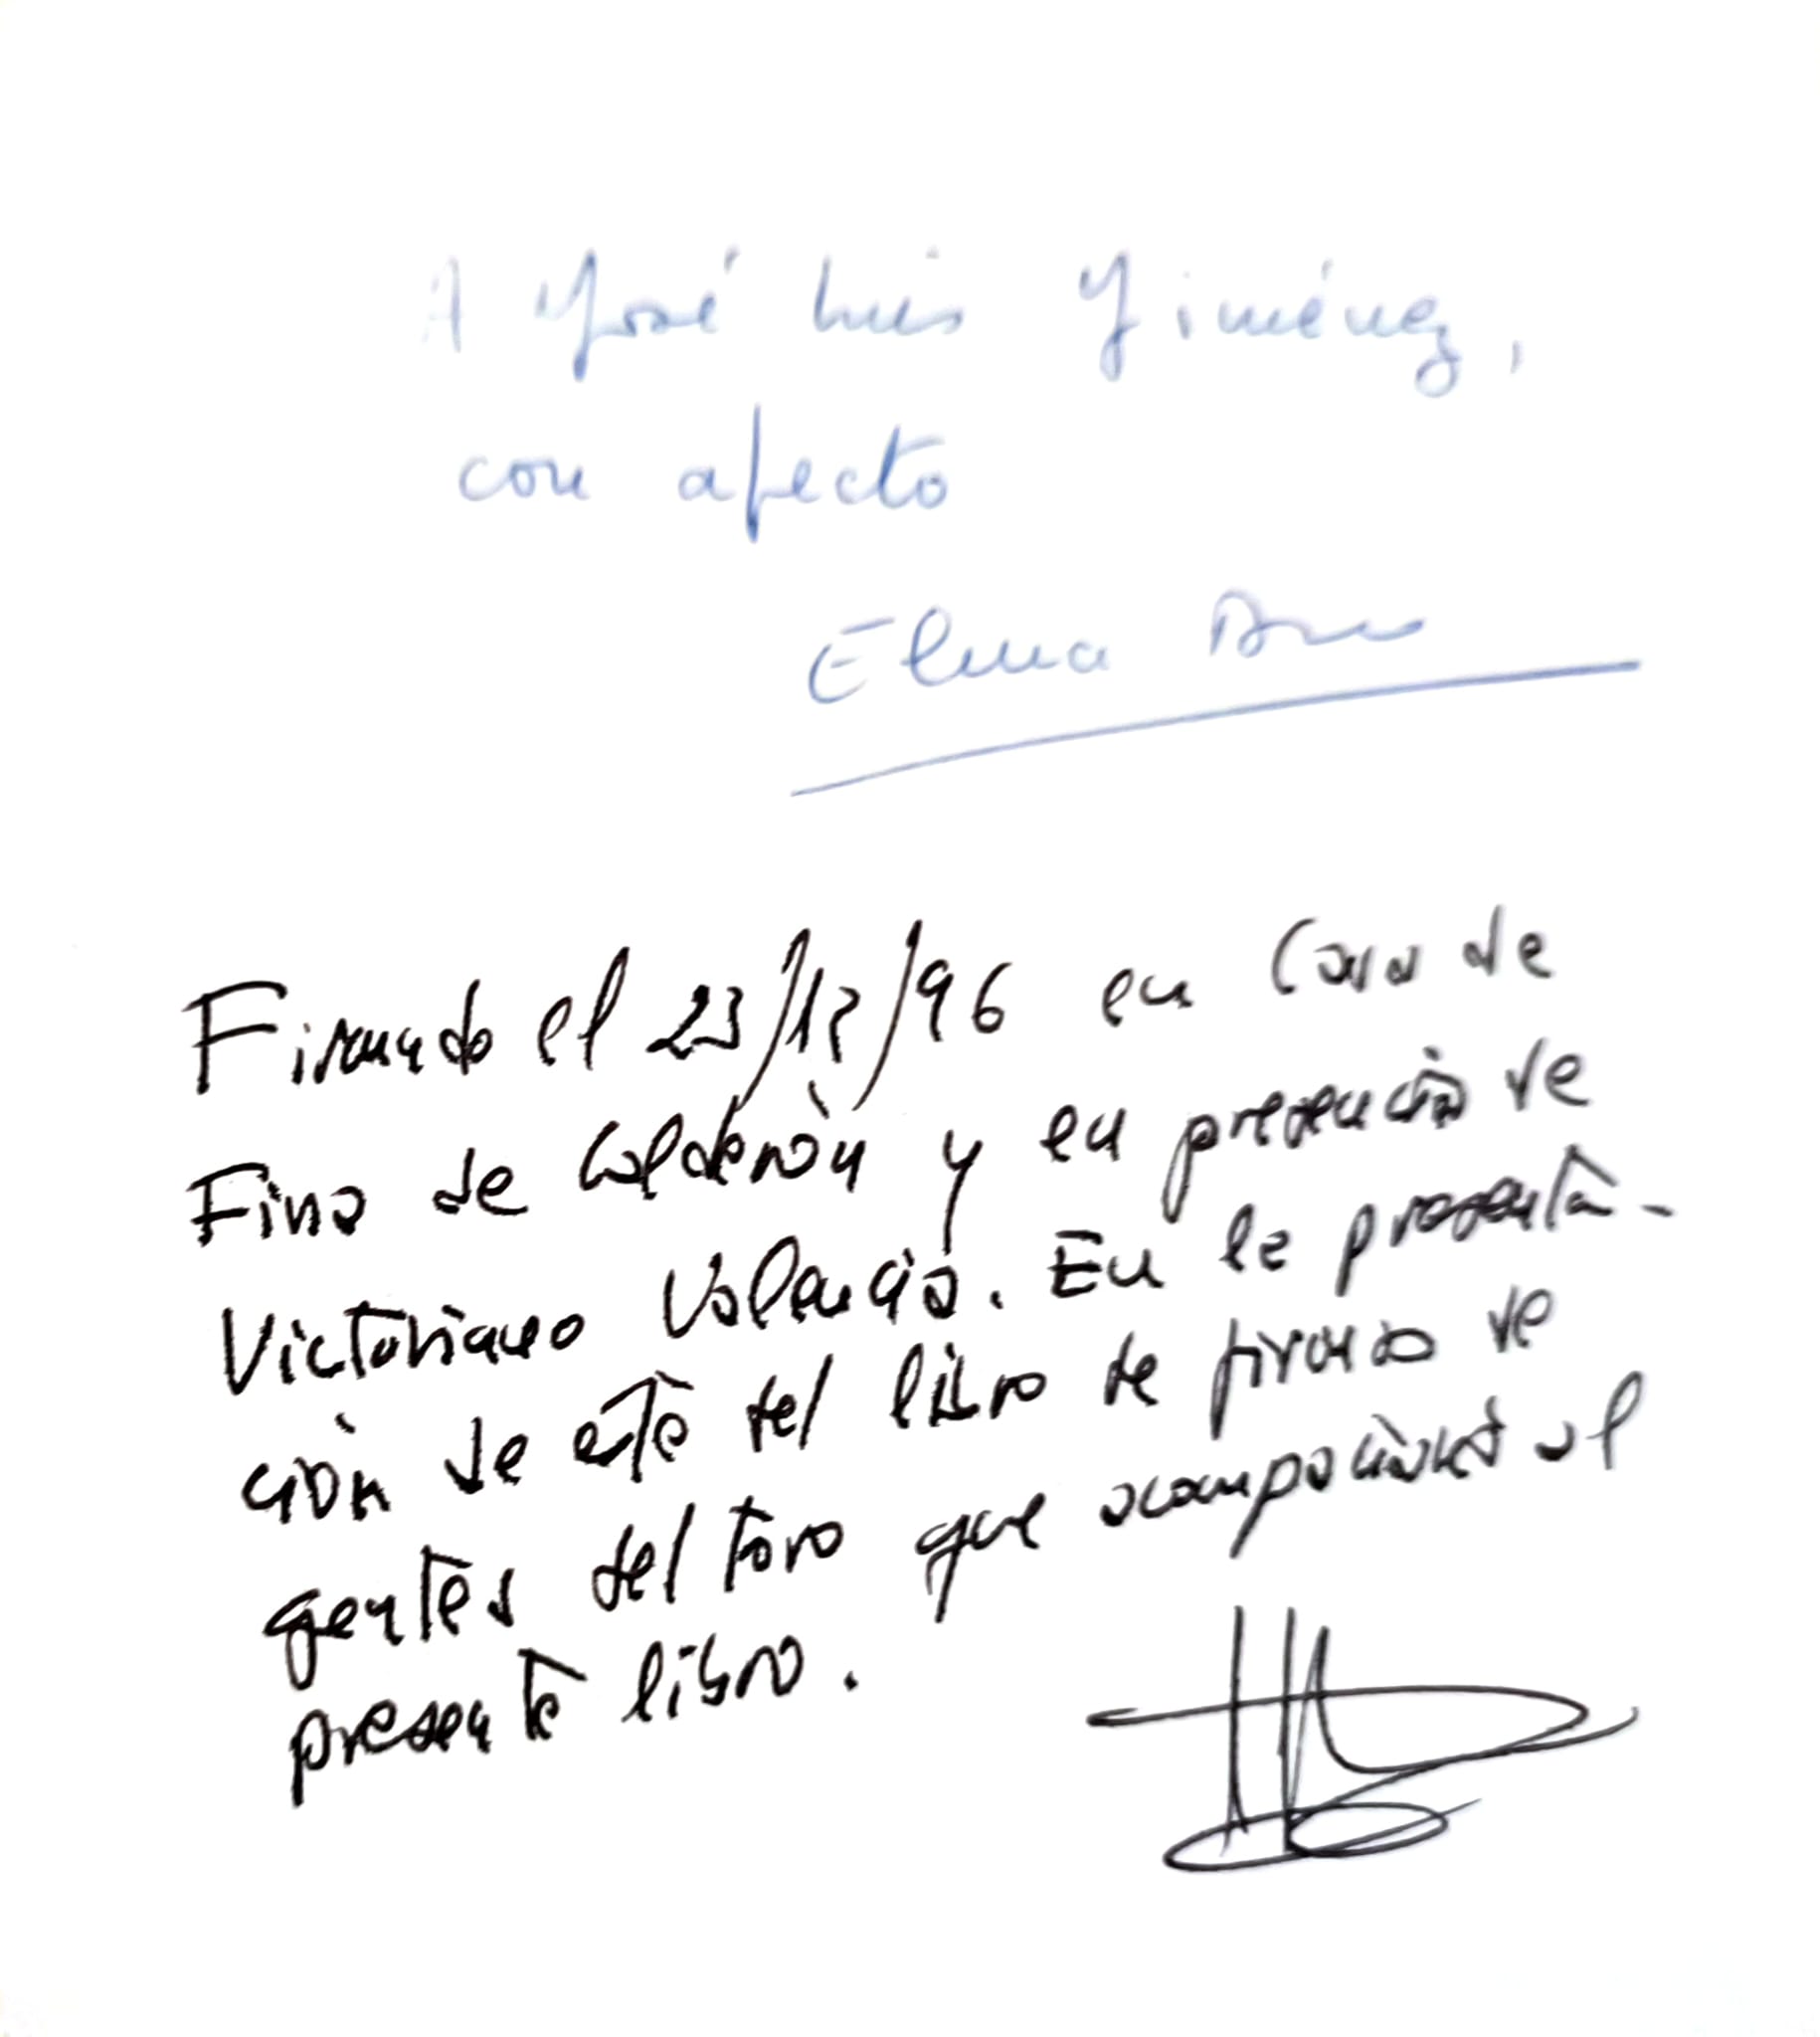 A José Luis Jiménez,
con afecto
Elena
Firmado el 23/12/96 en Casa de
Fina de Calderón y en presencia de
Victoriano Valencia. En la presenta-
ción de este del libro de firmas de
gentes del toro que acompañará al
presente libro.